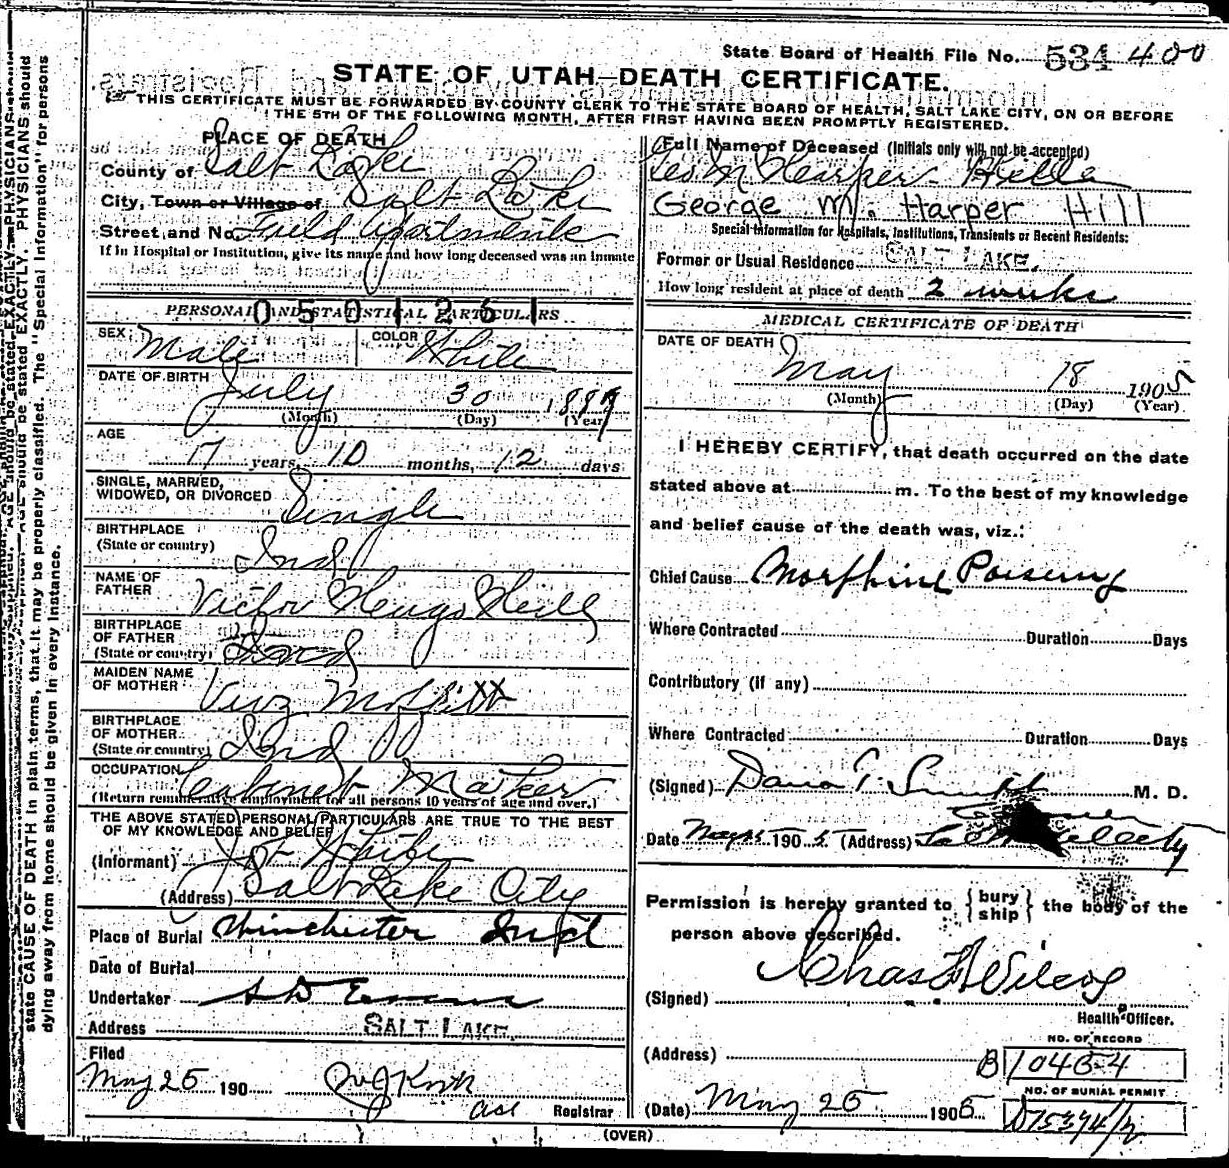 State Board of Health File No. 534 400
STATE OF UTAH—DEATH CERTIFICATE.
THIS CERTIFICATE MUST BE FORWARDED BY COUNTY CLERK TO THE STATE BOARD OF HEALTH, SALT LAKE CITY, ON OR BEFORE
THE 5TH OF THE FOLLOWING MONTH, AFTER FIRST HAVING BEEN PROMPTLY REGISTERED.
PLACE OF DEATH
County of Salt Lake
City, Town or Village of Salt Lake
Street and No. Field Apartments
If in Hospital or Institution, give its name and how long deceased was an inmate
0501261
PERSONAL AND STATISTICAL PARTICULARS
SEX Male COLOR White
DATE OF BIRTH July 30 1887
(Month) (Day) (Year)
AGE
17 years, 10 months, 12 days
SINGLE, MARRIED,
WIDOWED, OR DIVORCED Single
BIRTHPLACE
(State or country) Ind
NAME OF
FATHER Victor Hugo Hill
BIRTHPLACE
OF FATHER
(State or country) Ind
MAIDEN NAME
OF MOTHER
BIRTHPLACE
OF MOTHER
(State or country) Ind
OCCUPATION Cabinet Maker
(Return remunerative employment for all persons 10 years of age and over.)
THE ABOVE STATED PERSONAL PARTICULARS ARE TRUE TO THE BEST
OF MY KNOWLEDGE AND BELIEF
(Informant)
(Address) Salt Lake City
Place of Burial Winchester Ind
Date of Burial
Undertaker S D Evans
Address SALT LAKE.
Filed
May 25 190
Registrar
Full Name of Deceased (Initials only will not be accepted)
Geo M Harper Hill
George M. Harper Hill
Special Information for Hospitals, Institutions, Transients or Recent Residents:
Former or Usual Residence SALT LAKE.
How long resident at place of death 2 weeks
MEDICAL CERTIFICATE OF DEATH
DATE OF DEATH May 18 1905
(Month) (Day) (Year)
I HEREBY CERTIFY, that death occurred on the date
stated above at m. To the best of my knowledge
and belief cause of the death was, viz.:
Chief Cause Morphine Poisening
Where Contracted Duration Days
Contributory (if any)
Where Contracted Duration Days
(Signed) Dana T. Smith M. D.
Date 190 5 (Address)
Permission is hereby granted to { bury ship } the body of the
person above described.
(Signed) Chas F Wilcox
Health Officer.
NO. OF RECORD
(Address) B 10464
NO. OF BURIAL PERMIT
(Date) May 25 1905
(OVER)
state CAUSE OF DEATH in plain terms, that it may be properly classified. The "Special Information" for persons
dying away from home should be given in every instance.